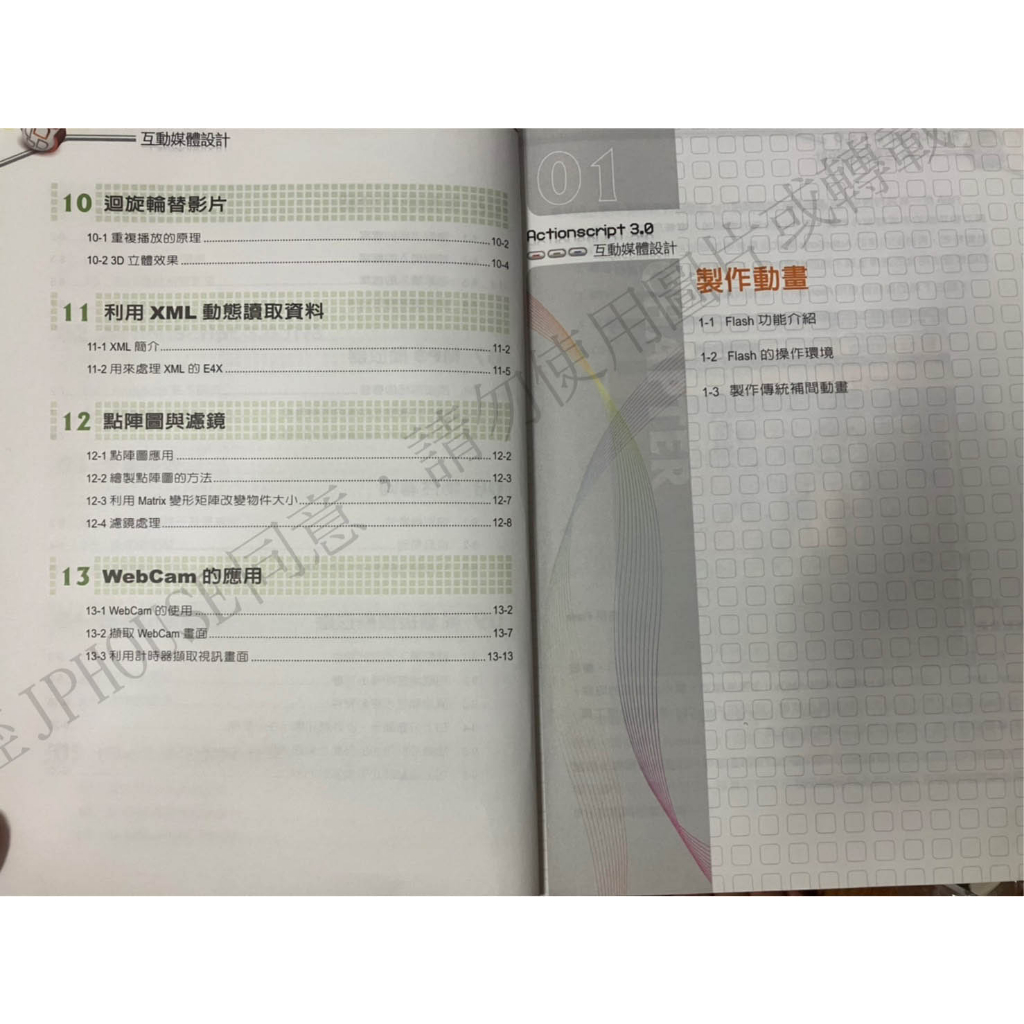 互動媒體設計
10 迴旋輪替影片
10-1 重複播放的原理 10-2
10-2 3D 立體效果 10-4
11 利用 XML 動態讀取資料
11-1 XML 簡介 11-2
11-2 用來處理 XML 的 E4X 11-5
12 點陣圖與濾鏡
12-1 點陣圖應用 12-2
12-2 繪製點陣圖的方法 12-3
12-3 利用 Matrix 變形矩陣改變物件大小 12-7
12-4 濾鏡處理 12-8
13 WebCam 的應用
13-1 WebCam 的使用 13-2
13-2 擷取 WebCam 畫面 13-7
13-3 利用計時器擷取視訊畫面 13-13
01
Actionscript 3.0
互動媒體設計
製作動畫
1-1 Flash 功能介紹
1-2 Flash 的操作環境
1-3 製作傳統補間動畫
經 JPHOUSE同意，請勿使用圖片或轉載